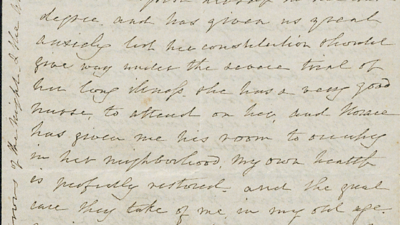 degree. and has given us great
anxiety lest her constitution should
give way under the severe trial of
her long illness she has a very good
nurse, to attend on her, and Horace
has given me his room to occupy
in her neighborhood, my own health
is perfectly restored. and the great
care they take of me in my old age.
of the night &